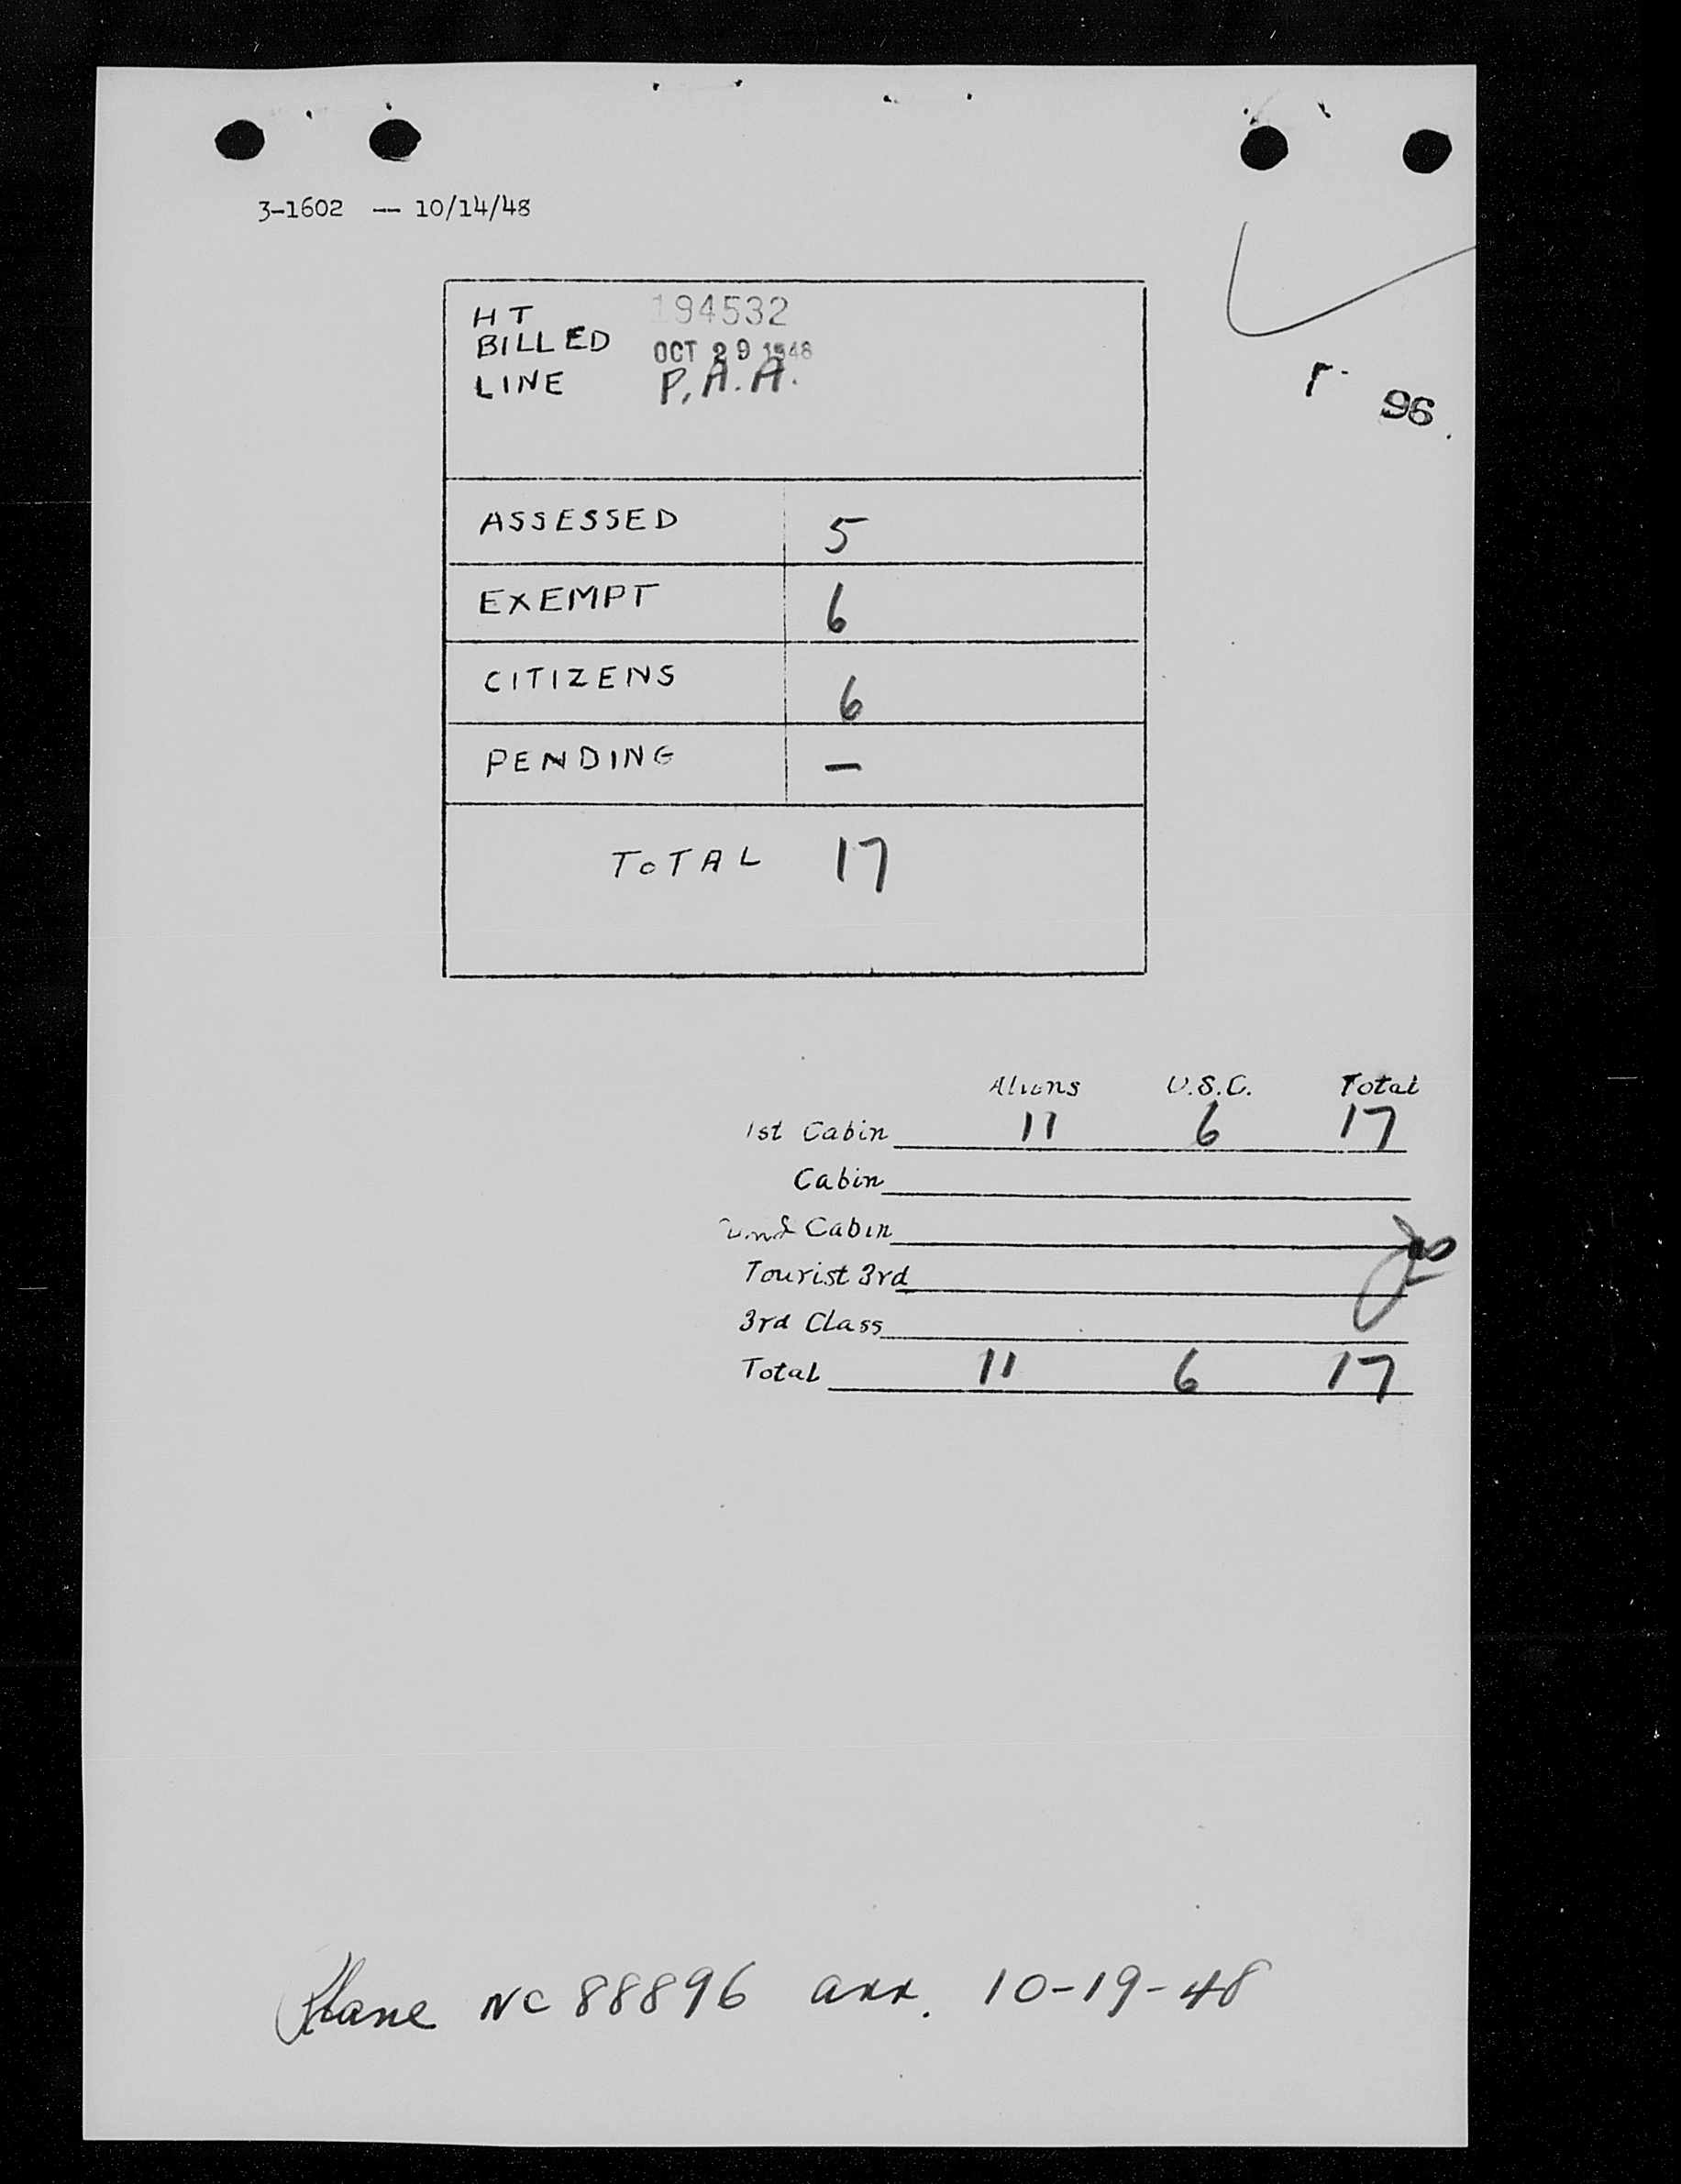 3-1602 -- 10/14/48
HT 194532
BILLED OCT 29 1948
LINE P.A.A.
96
ASSESSED 5
EXEMPT 6
CITIZENS 6
PENDING –
TOTAL 17
Aliens U.S.C. Total
1st Cabin 11 6 17
Cabin
2nd Cabin
Tourist 3rd
3rd Class
Total 11 6 17
Plane NC 88896 arr. 10-19-48